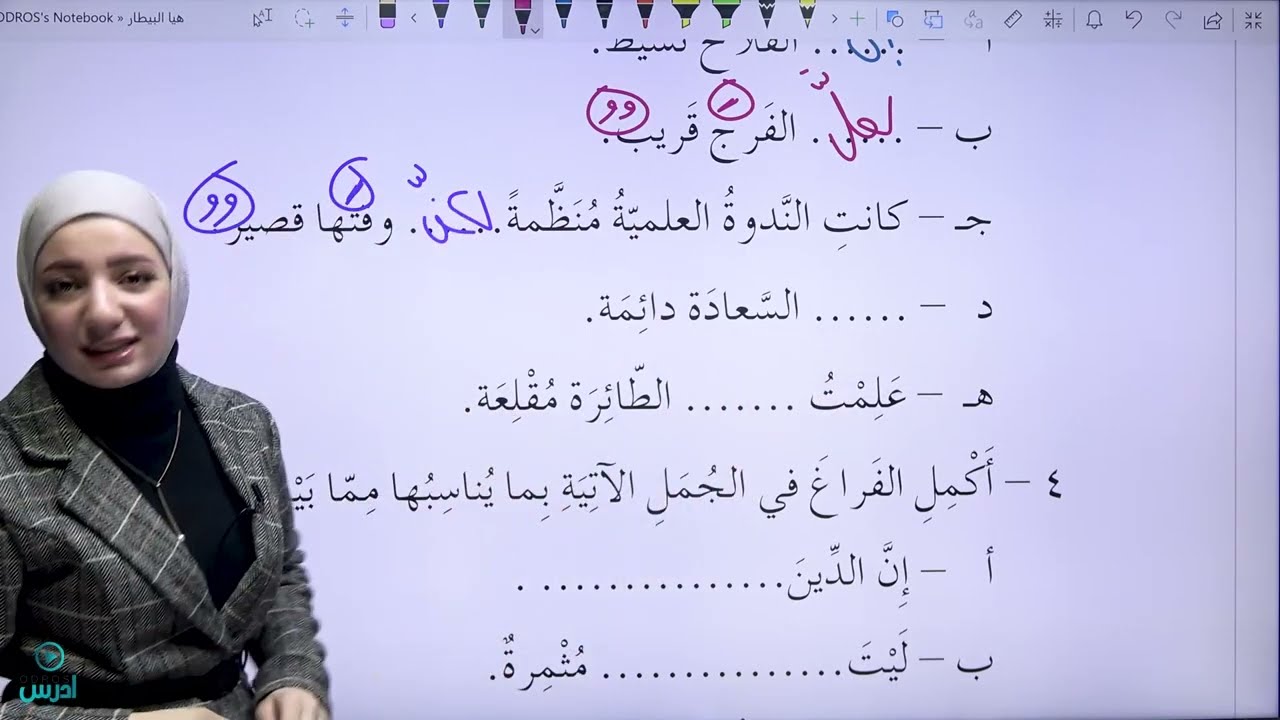 ODROS's Notebook » هيا البيطار
أ – إن.... الفلاح نشيط.
ب – لعلّ...... الفَرج قَريب.
جـ – كانتِ النَّدوةُ العلميّةُ مُنَظَّمةً لكنّ...... وقتها قصير
د – ...... السَّعادَة دائِمَة.
هـ – عَلِمْتُ ....... الطّائِرَة مُقْلِعَة.
٤ – أَكْمِلِ الفَراغَ في الجُمَلِ الآتِيَةِ بِما يُناسِبُها مِمّا بَيْ
أ – إِنَّ الدِّينَ................ .
ب – لَيْتَ................ مُثْمِرةٌ.
ODROS
أدرس